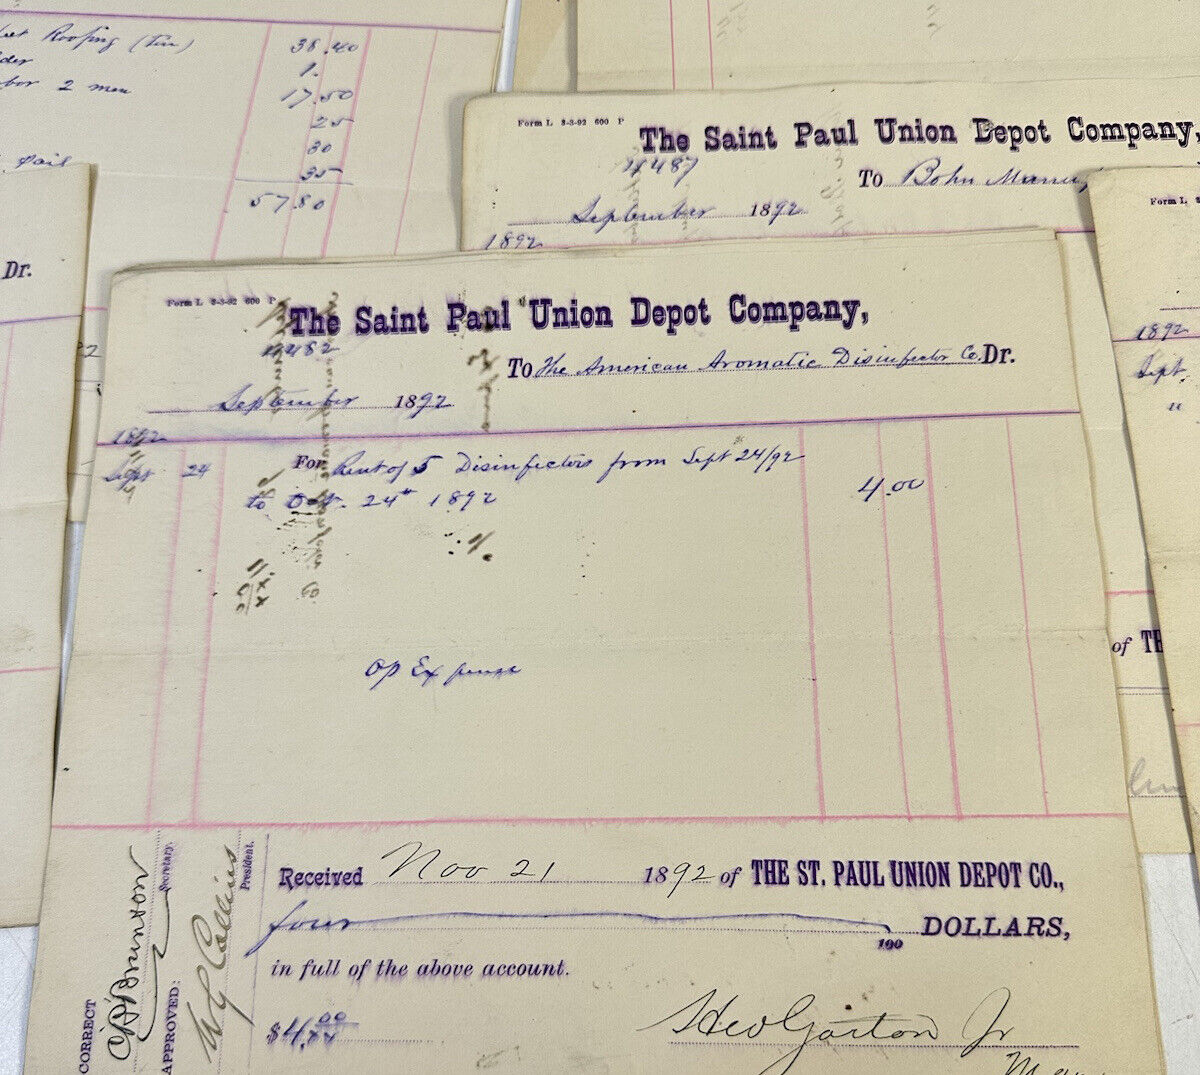 Roofing (tin) 38.40
1.
2 men 17.50
25
30
35
57.80
Dr.
Form L 8-3-92 600 P
The Saint Paul Union Depot Company,
4487
To Bohn Manuf
September 1892
1892
Form L
1892
Sept
"
Form L 8-3-92 600 P
The Saint Paul Union Depot Company,
4482
To The American Aromatic Disinfector Co. Dr.
September 1892
1892
Sept 24 For Rent of 5 Disinfectors from Sept 24/92
to Oct. 24th 1892 4.00
Op Expense
of TH
Received Nov 21 1892 of THE ST. PAUL UNION DEPOT CO.,
four 100 DOLLARS,
in full of the above account.
$4.00
Geo Gorton Jr
CORRECT
Secretary.
APPROVED:
W G Collins
President.